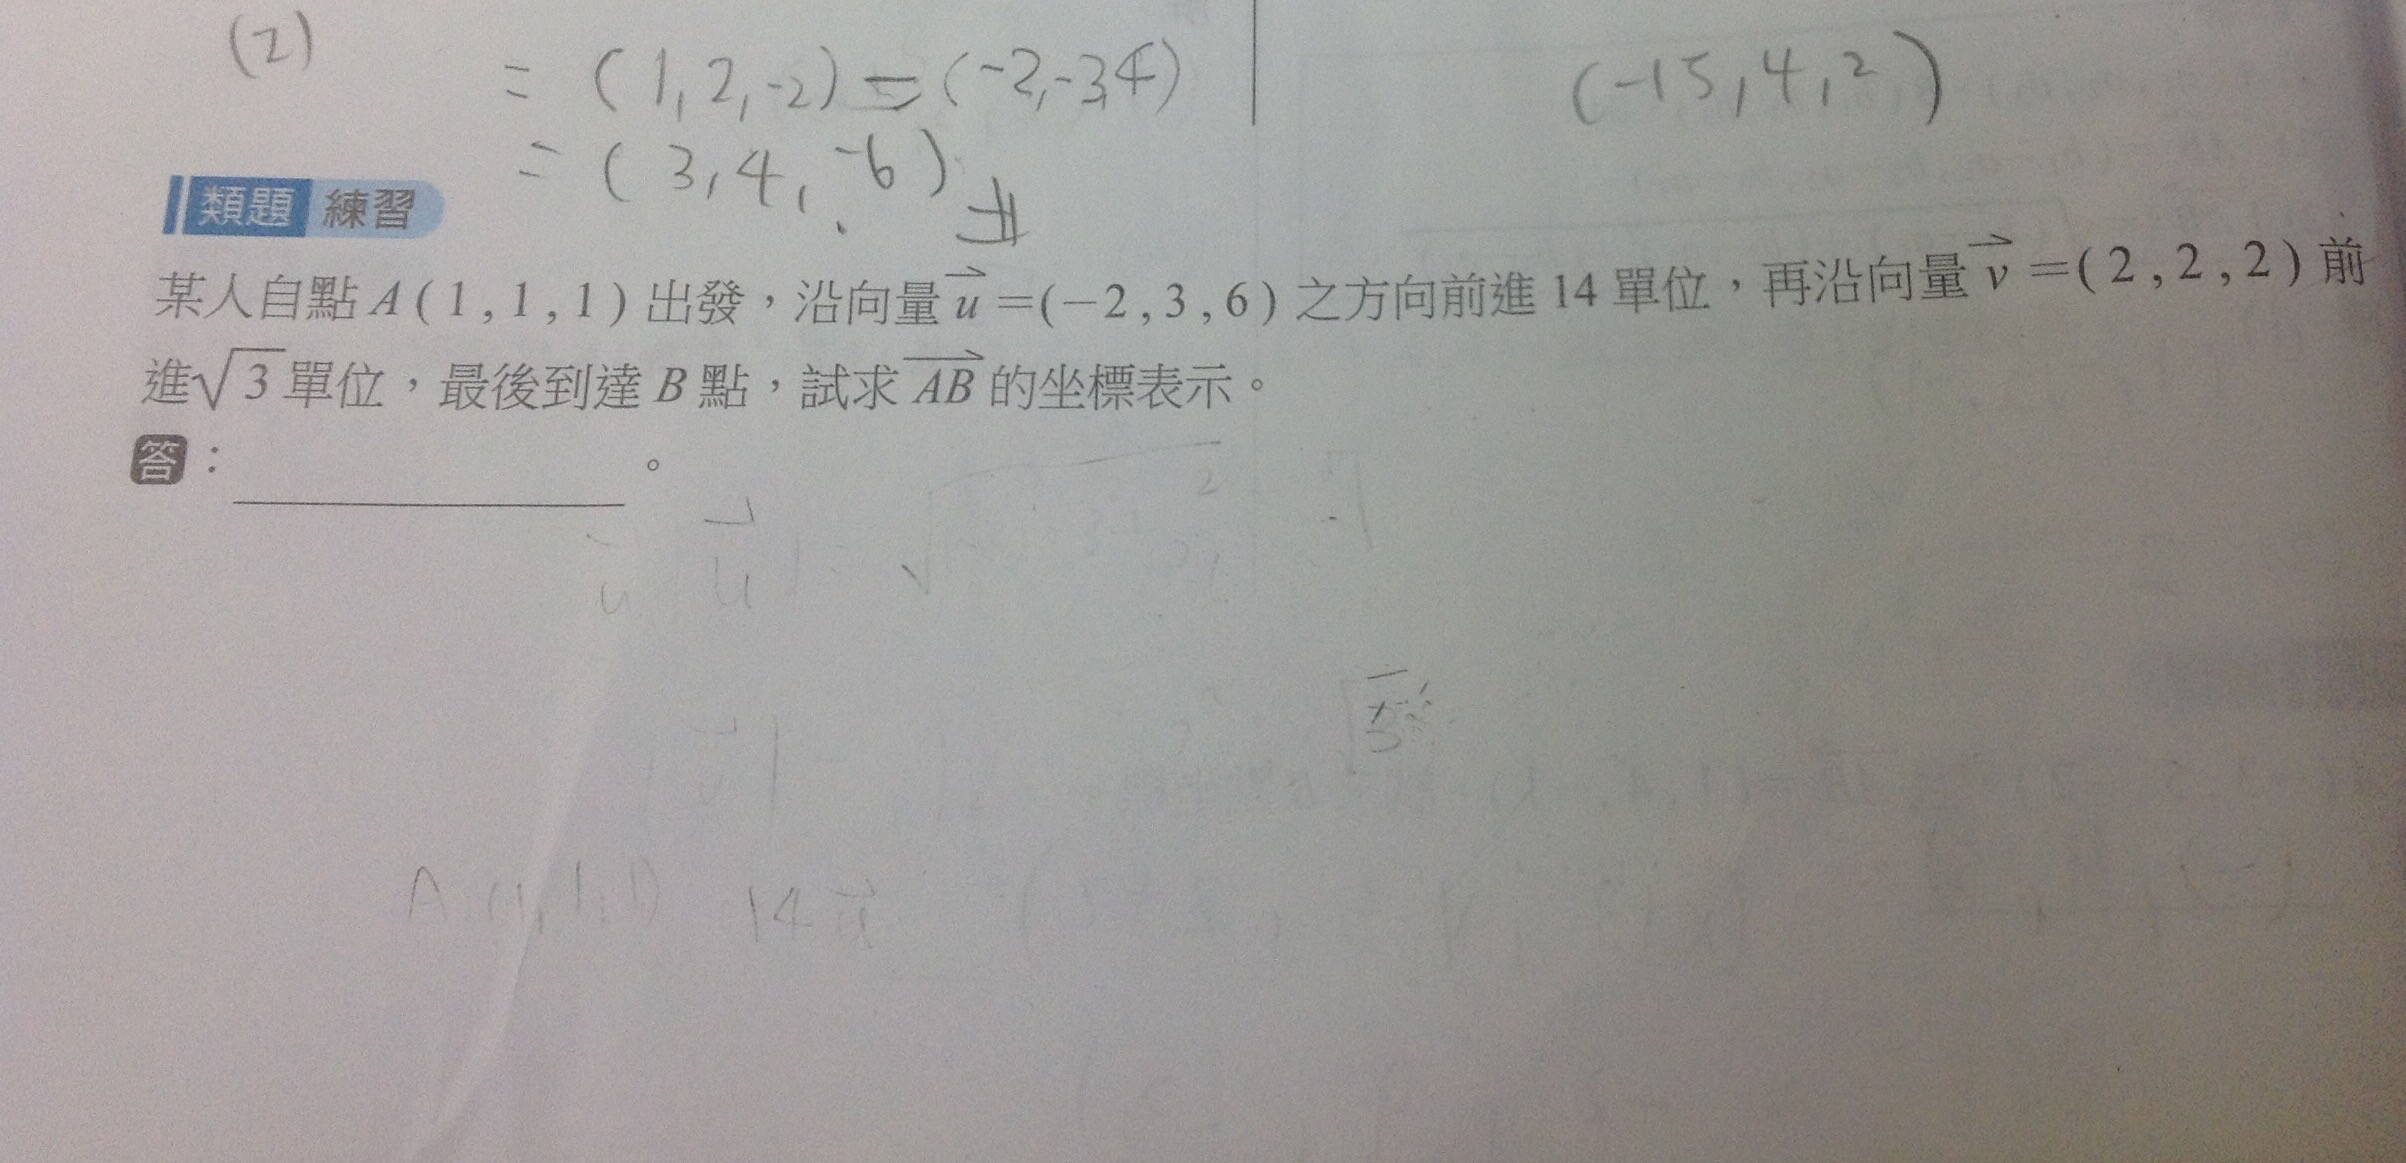 (2)
= (1,2,-2) - (-2,-3,4)
(-15,4,2)
= (3,4,-6)
類題 練習
某人自點 A(1,1,1) 出發，沿向量 u⃗=(−2,3,6) 之方向前進 14 單位，再沿向量 v⃗=(2,2,2) 前
進√3 單位，最後到達 B 點，試求 AB⃗ 的坐標表示。
答：＿＿＿＿＿＿。
A(1,1,1) 14u⃗